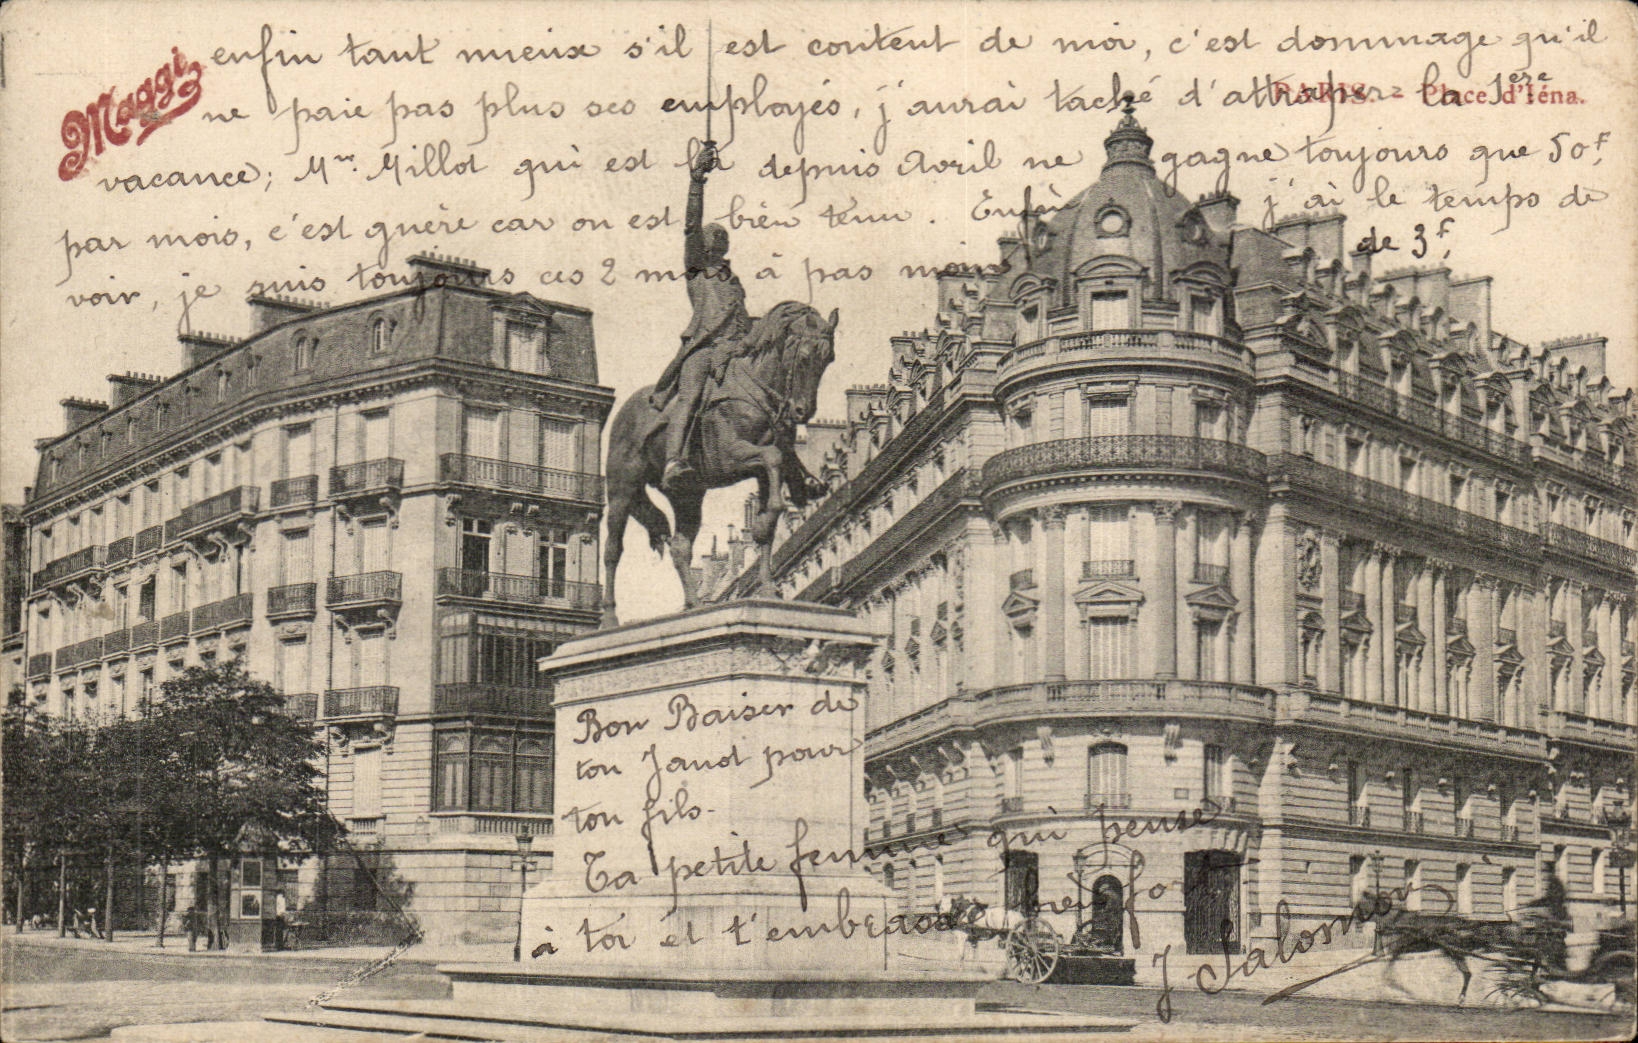 Maggi
PARIS. - Place d'Iéna.
enfin tant mieux s'il est content de moi, c'est dommage qu'il
ne paie pas plus ses employés, j'aurai taché d'attraper la 1ère
vacance; Mr. Millot qui est là depuis Avril ne gagne toujours que 50f,
par mois, c'est guère car on est bien tenu. Enfin j'ai le temps de
voir, je suis toujours ces 2 mois à pas moins de 3f,
Bon Baiser de
ton Janot pour
ton fils.
Ta petite femme qui pense
bien fort
à toi et t'embrasse
J. Salomon